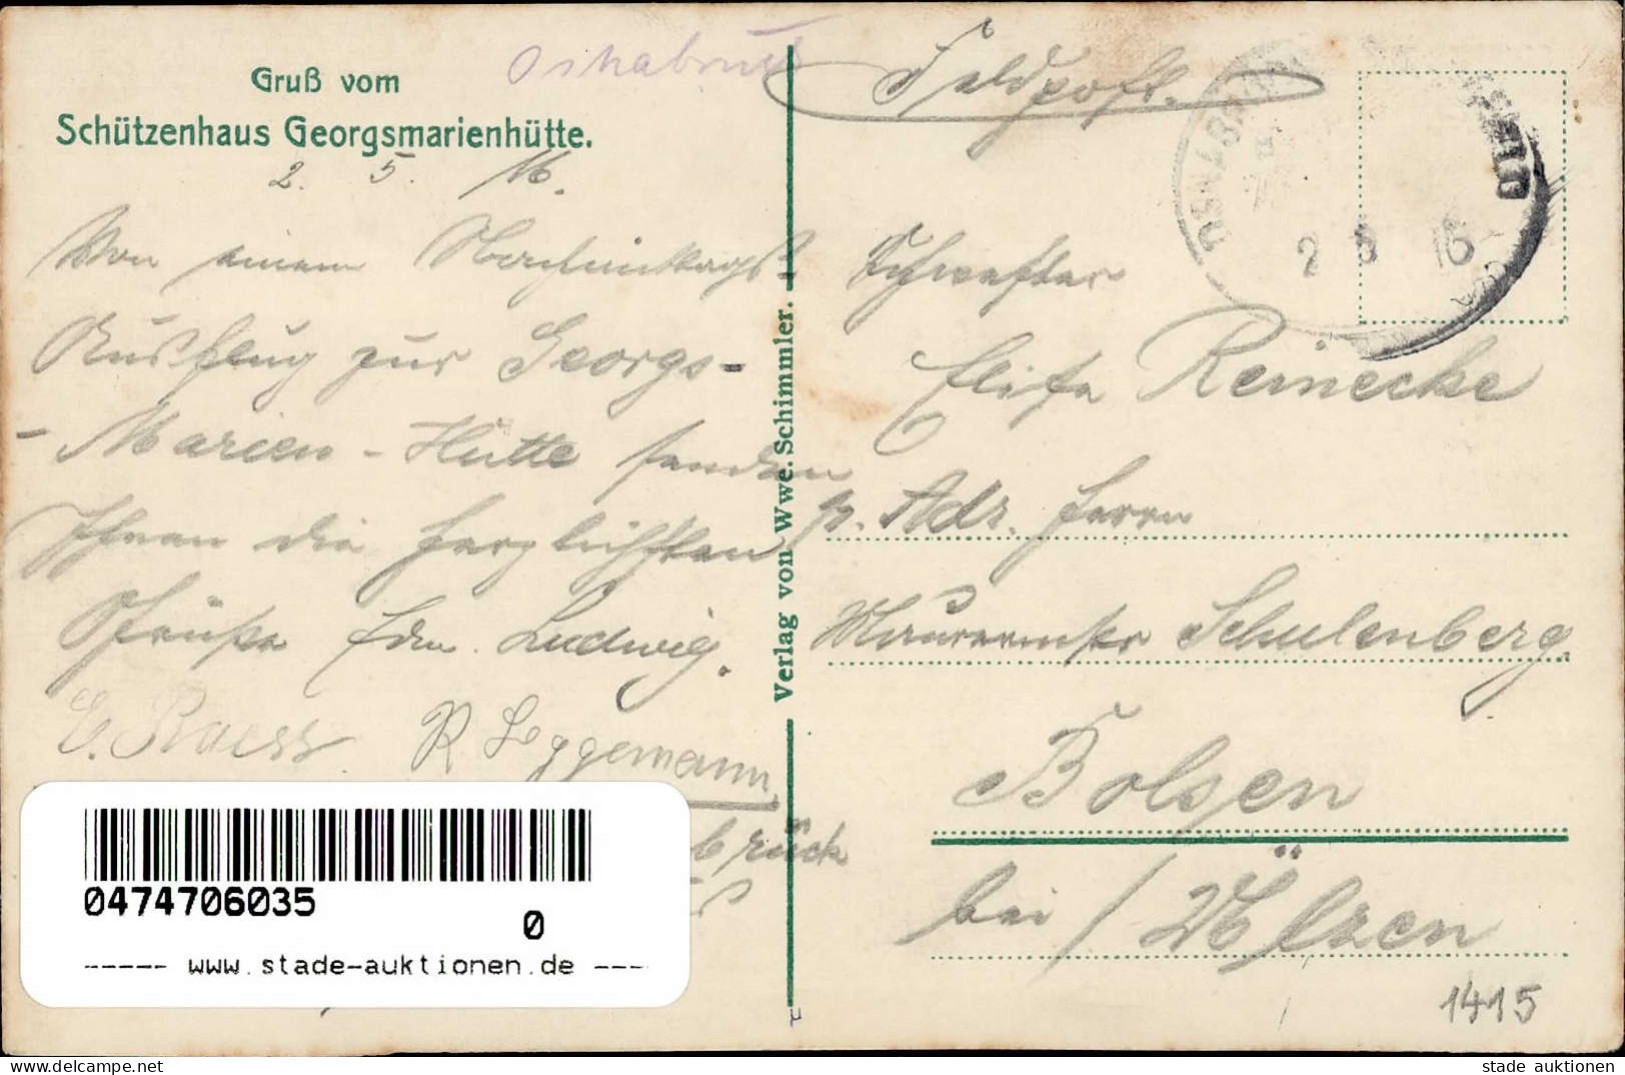 Osnabrück
Gruß vom
Schützenhaus Georgsmarienhütte.
2. 5. 16.
Von einem Nachmittags-
Ausflug zur Georgs-
-Marien-Hütte senden
Ihnen die herzlichsten
Grüße Edm. Ludwig.
E. Raess R Leggemann
brück
Verlag von Wwe. Schimmler.
Feldpost.
OSNABRÜCK
2 5 16
Schwester
Elisa Reinecke
p. Adr. Herrn
Maurermstr Schulenberg.
Bolsen
bei / Ülzen
1415
0474706035
0
----- www.stade-auktionen.de ----
stade auktionen